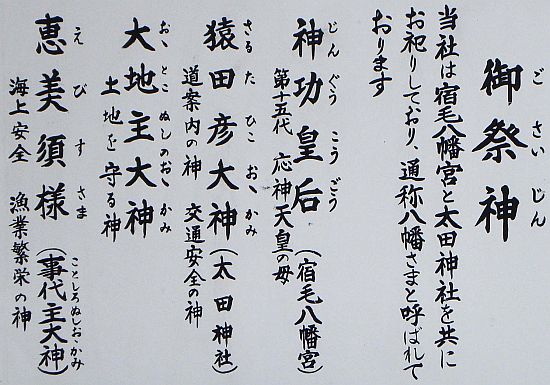 御祭神
ごさいじん
当社は宿毛八幡宮と太田神社を共に
お祀りしており、通称八幡さまと呼ばれて
おります
神功皇后(宿毛八幡宮)
じんぐうこうごう
第十五代 応神天皇の母
猿田彦大神(太田神社)
さるたひこおゝかみ
道案内の神 交通安全の神
大地主大神
おゝとこぬしのおゝかみ
土地を守る神
恵美須様(事代主大神)
えびすさま ことしろぬしおゝかみ
海上安全 漁業繁栄の神